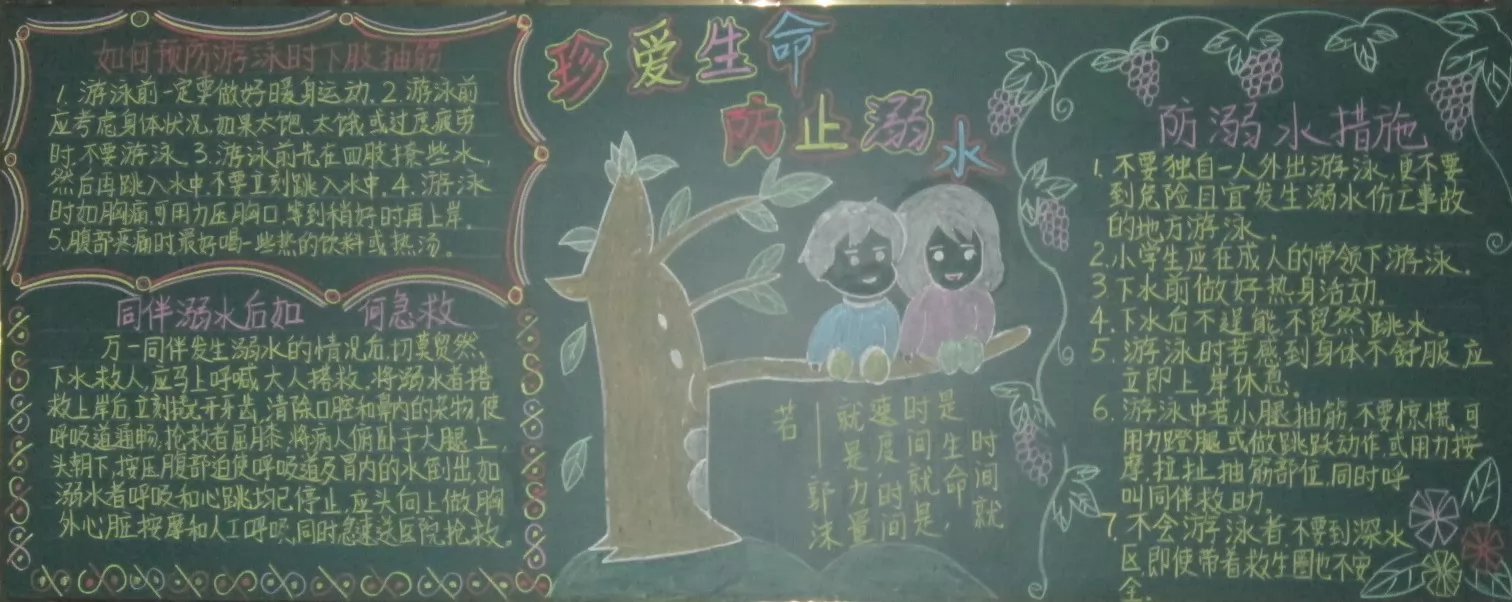 珍爱生命
防止溺水
如何预防游泳时下肢抽筋
1.游泳前一定要做好暖身运动.2.游泳前
应考虑身体状况,如果太饱.太饿或过度疲劳
时,不要游泳.3.游泳前先在四肢撩些水,
然后再跳入水中.不要立刻跳入水中.4.游泳
时如胸痛,可用力压胸口,等到稍好时再上岸.
5.腹部疼痛时,最好喝一些热的饮料或热汤。
同伴溺水后如何急救
万一同伴发生溺水的情况后,切莫贸然、
下水救人,应马上呼喊,大人搭救.将溺水者搭
救上岸后,立刻撬开牙齿,清除口腔和鼻内的杂物,使
呼吸道通畅,抢救者屈膝,将病人俯卧于大腿上,
头朝下,按压腹部迫使呼吸道及胃内的水倒出,如
溺水者呼吸和心跳均已停止,应头向上做胸
外心脏按摩和人工呼吸,同时急速送医院抢救。
时间就
是生命,
时间就是
速度时间
就是力量
——郭沫
若
防溺水措施
1.不要独自一人外出游泳,更不要
到危险且宜发生溺水伤亡事故
的地方游泳。
2.小学生应在成人的带领下游泳.
3下水前做好热身活动.
4.下水后不逞能,不贸然跳水。
5.游泳时若感到身体不舒服,应
立即上岸休息.
6.游泳中若小腿抽筋,不要惊慌,可
用力蹬腿或做跳跃动作,或用力按
摩,拉扯抽筋部位,同时呼
叫同伴救助.
7.不会游泳者,不要到深水
区,即使带着救生圈也不安
全.